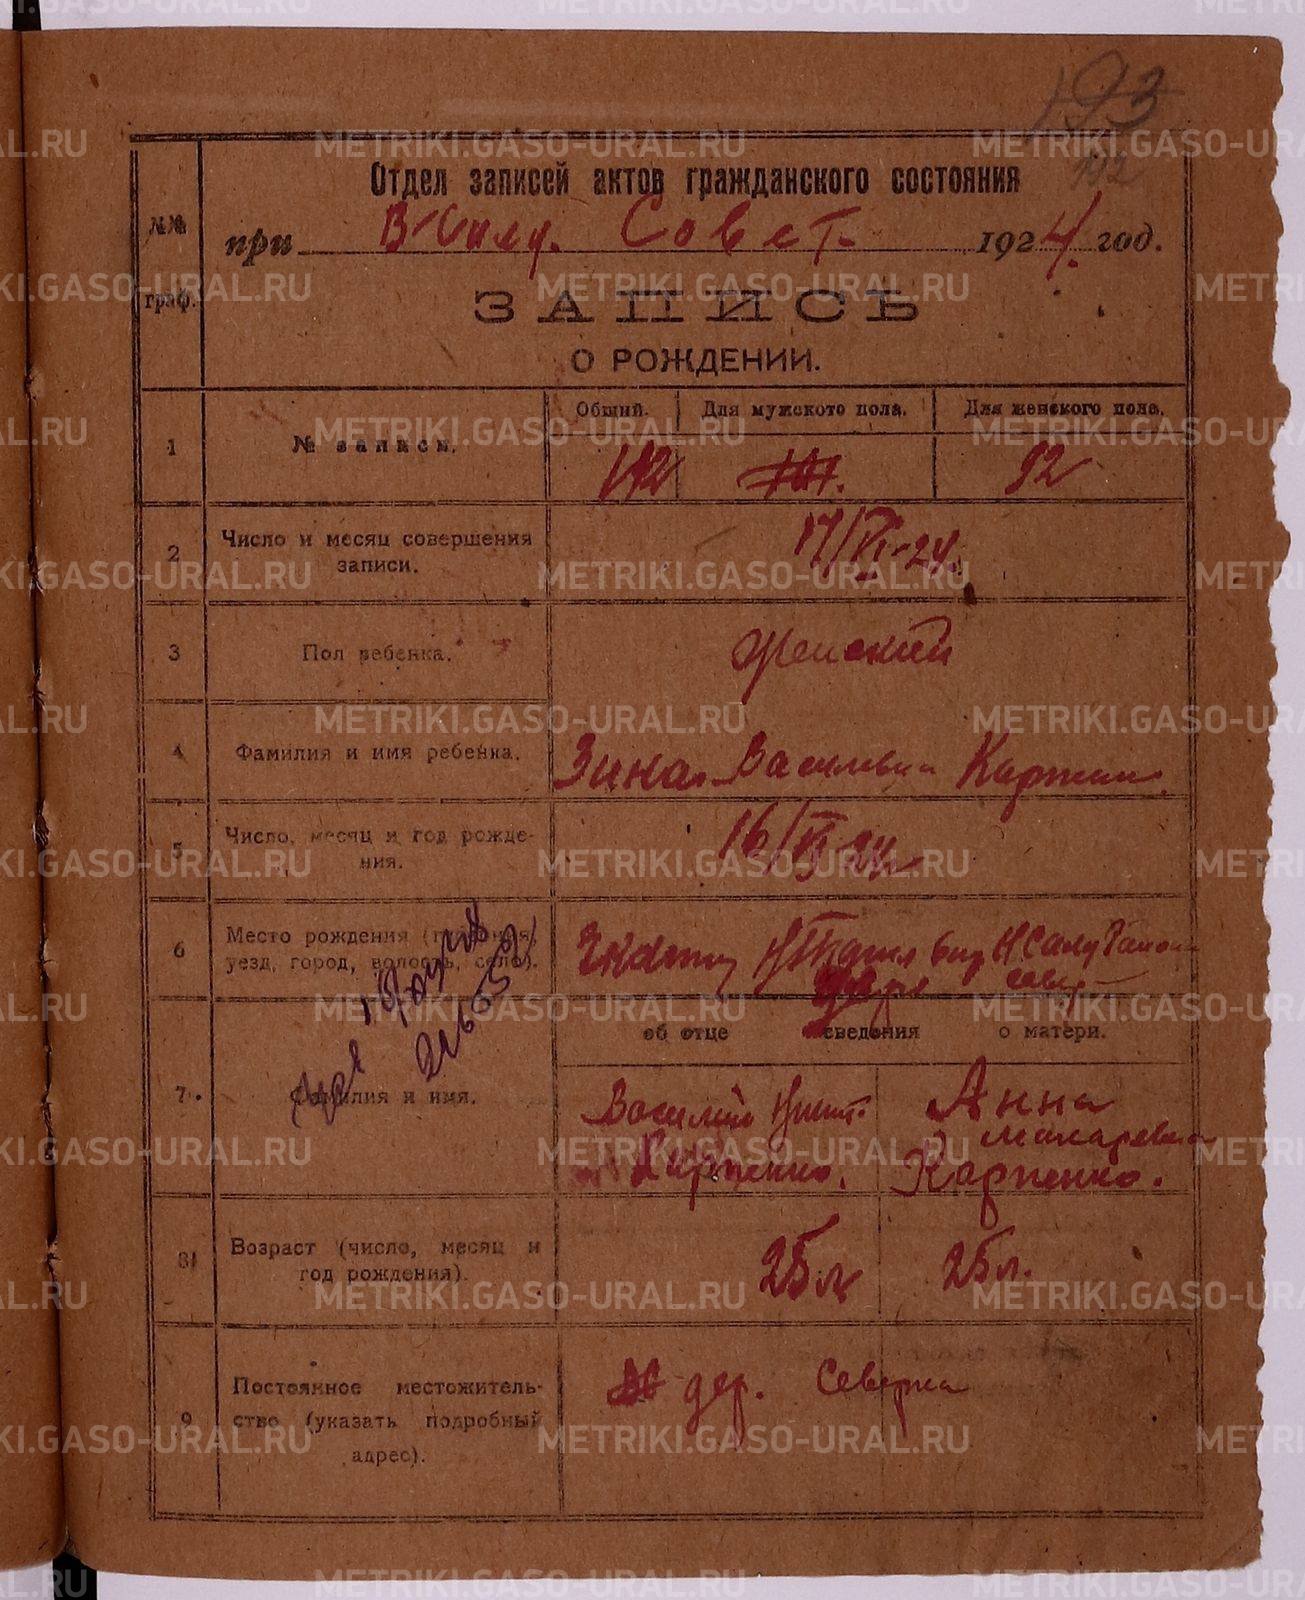 193
192
Отдел записей актов гражданского состояния
№№ граф.
при В-Салд. Совет. 1924 год.
ЗАПИСЬ
О РОЖДЕНИИ.
Общий. Для мужского пола. Для женского пола.
1 № записи. 192 92
2 Число и месяц совершения записи. 17/VI-24.
3 Пол ребенка. женский
4 Фамилия и имя ребенка. Зина Васильевна
5 Число, месяц и год рождения. 16/VI-24
6 Место рождения (губерния, уезд, город, волость, село).
об отце сведения о матери.
7 Фамилия и имя.
Василий Анна
Макаревна
Карпенко. Карпенко.
8 Возраст (число, месяц и год рождения). 25 л 25 л.
9 Постоянное местожительство (указать подробный адрес). дер. Северна
METRIKI.GASO-URAL.RU